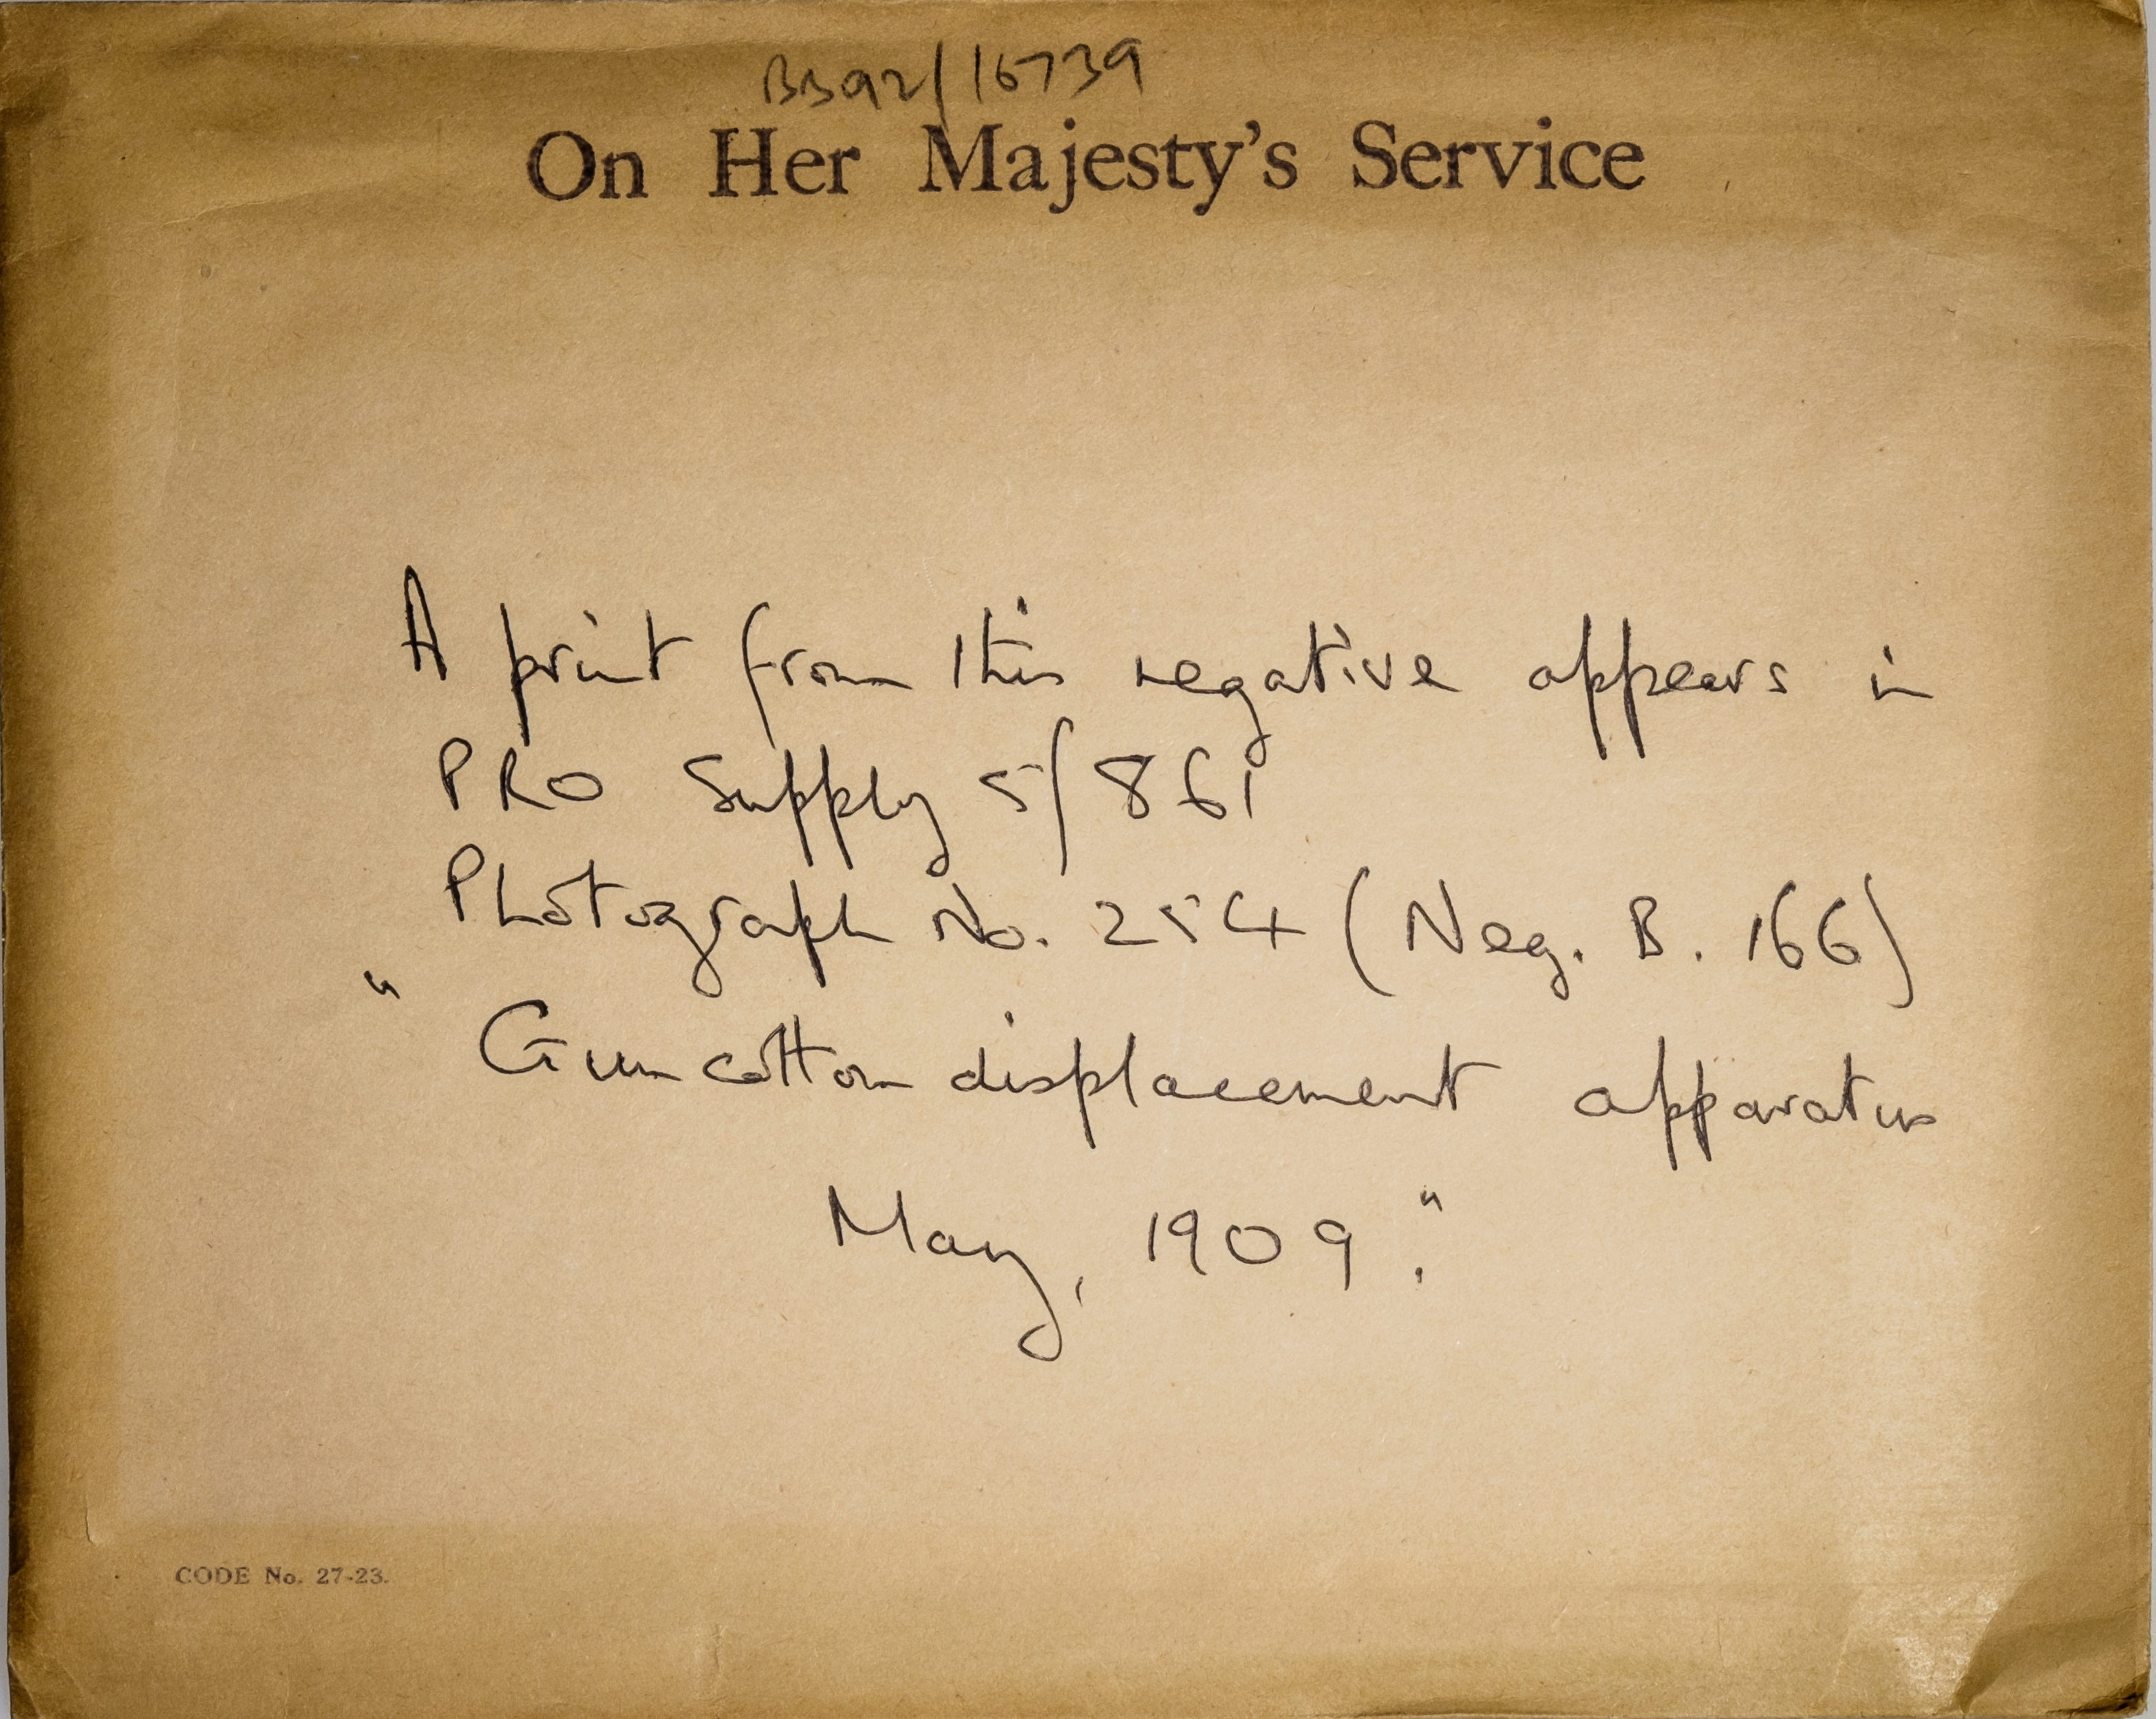 BB92/16739
On Her Majesty's Service
A print from this negative appears in
PRO Supply 5/861
Photograph No. 254 (Neg. B. 166)
" Guncotton displacement apparatus
May, 1909."
CODE No. 27-23.